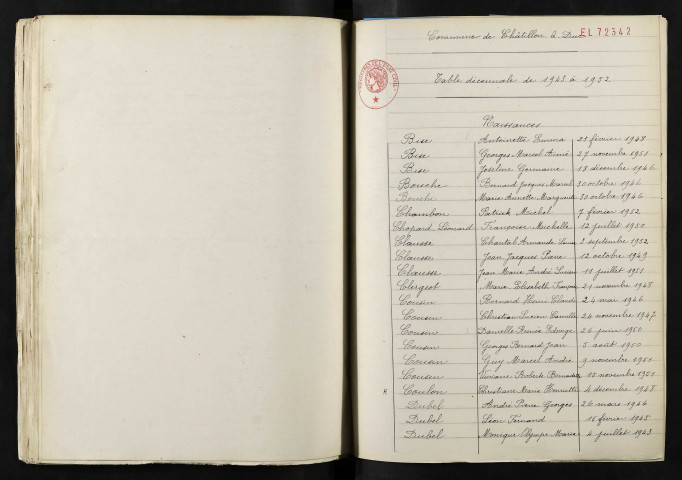 Commune de Châtillon s/ Dué
EL 72342
Table décennale de 1943 à 1952
Naissances
Bise Antoinette Emma 25 février 1948
Bise Georges Marcel Aimé 27 novembre 1951
Bise Joseline Germaine 18 décembre 1946
Bouche Bernard Jacques Marcel 30 octobre 1946
Bouche Marie Annette Marguerite 30 octobre 1946
Chambon Patrick Michel 7 février 1952
Chopard Léonard Françoise Michelle 12 juillet 1950
Clausse Chantal Armande 2 septembre 1952
Clausse Jean Jacques Pierre 12 octobre 1949
Clausse Jean Marie André Lucien 11 juillet 1951
Clergeot Marie Elisabeth Françoise 21 novembre 1948
Cousin Bernard Henri Claude 24 mai 1946
Cousin Christian Lucien Camille 24 novembre 1947
Cousin Danielle Renée Edwige 26 juin 1950
Cousin Georges Bernard Jean 5 août 1950
Cousin Guy Marcel André 9 novembre 1951
Cousin Viviane Roberte Bernadette 15 novembre 1951
Coulon Christiane Marie Henriette 4 décembre 1948
Dubel André Pierre Georges 26 mars 1944
Dubel Léon Fernand 15 février 1948
Dubel Monique Olympe Marie 4 juillet 1943